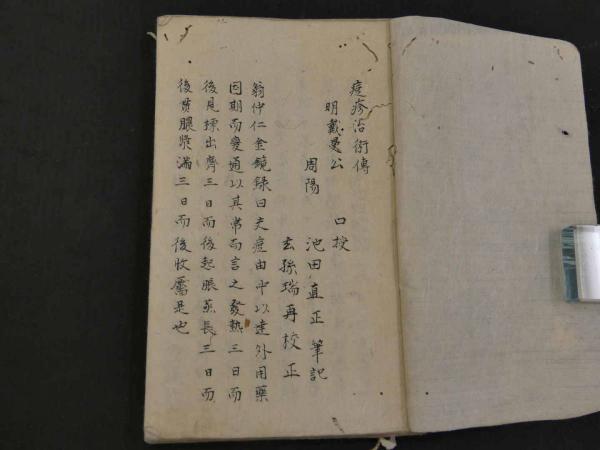 痘疹治術傳
明戴曼公 口授
周陽 池田直正筆記
玄孫瑞再校正
翁仲仁金鏡録曰夫痘由中以達外用藥
因期而變通以其常而言之發熱三日而
後見標出齊三日而後起脹蒸長三日而
後貫膿漿滿三日而後收靨是也